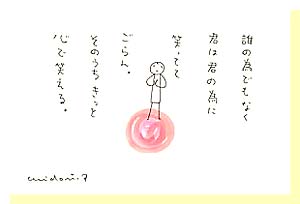 誰の為でもなく
君は君の為に
笑ってて
ごらん。
そのうちきっと
心で笑える。
midori.7